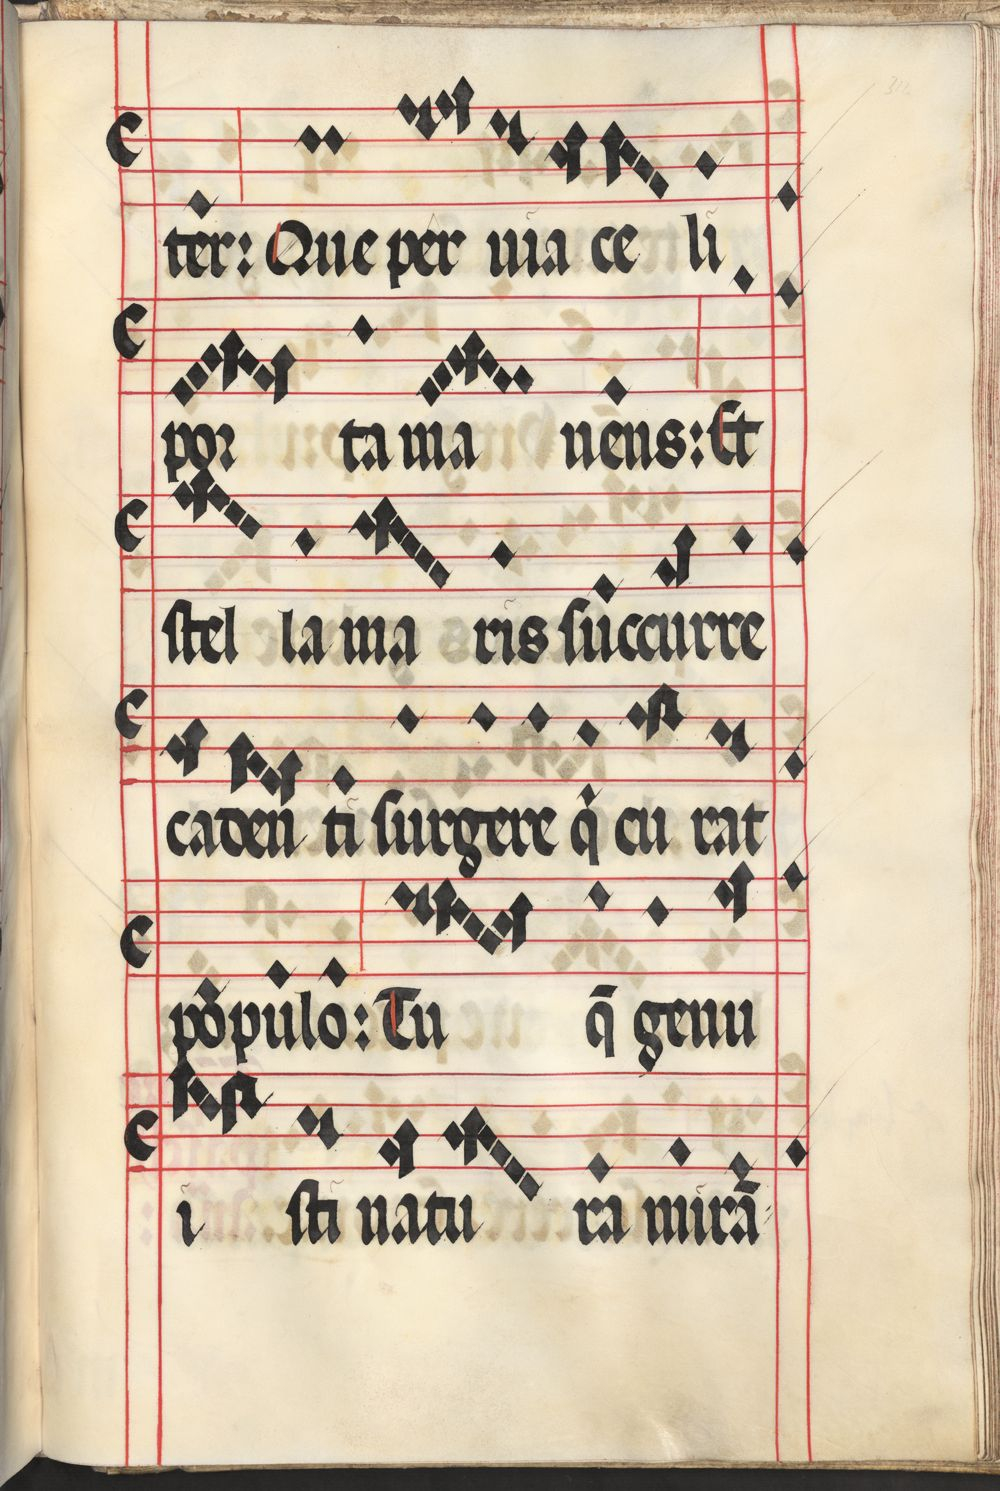 ter: Que per uia ce li
por ta ma nens: Et
stel la ma ris succurre
caden ti surgere q̇ cu rat
populo: Tu q̄ genu
i sti natu ra mirā